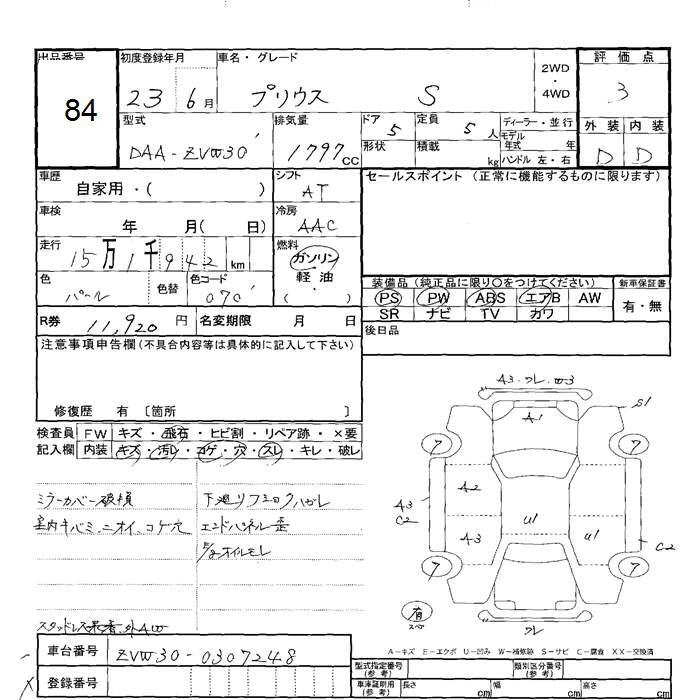 出品番号
84
初度登録年月
23 6月
車名・グレード
プリウス S
2WD
・
4WD
評価点
3
型式
DAA-ZVW30
排気量
1797 CC
ドア 5
定員 5 人
形状
積載 kg
ディーラー・並行
モデル年式 年
ハンドル 左・右
外装 内装
D D
車歴
自家用・( )
シフト
AT
セールスポイント (正常に機能するものに限ります)
車検
年 月( 日)
冷房
AAC
走行
15万1千942km
燃料
ガソリン
軽油
・
( )
色
パール
色替
色コード
070
装備品 (純正品に限り○をつけてください)
PS PW ABS エアB AW
SR ナビ TV カワ
新車保証書
有・無
R券 11,920 円
名変期限 月 日
後日品
注意事項申告欄(不具合内容等は具体的に記入して下さい)
修復歴 有 〔箇所 〕
検査員 FW キズ・飛石・ヒビ割・リペア跡・×要
記入欄 内装 キズ・汚レ・コゲ・穴・スレ・キレ・破レ
ミラーカバー破損
室内キバミ、ニオイ、コゲ穴
下廻りフロクハガレ
エンドパネル歪
オイルモレ
A3.ワレ.W3
A1
S1
7
7
A2
A3
C2
A3
U1
U1
C2
7
7
有
スペア
ワレ
A-キズ E-エクボ U-凹み W-補修跡 S-サビ C-腐食 XX-交換済
車台番号 ZVW30-0307248
登録番号
型式指定番号
(参考)
類別区分番号
(参考)
車庫証明用
(参考)
長さ cm
幅 cm
高さ cm